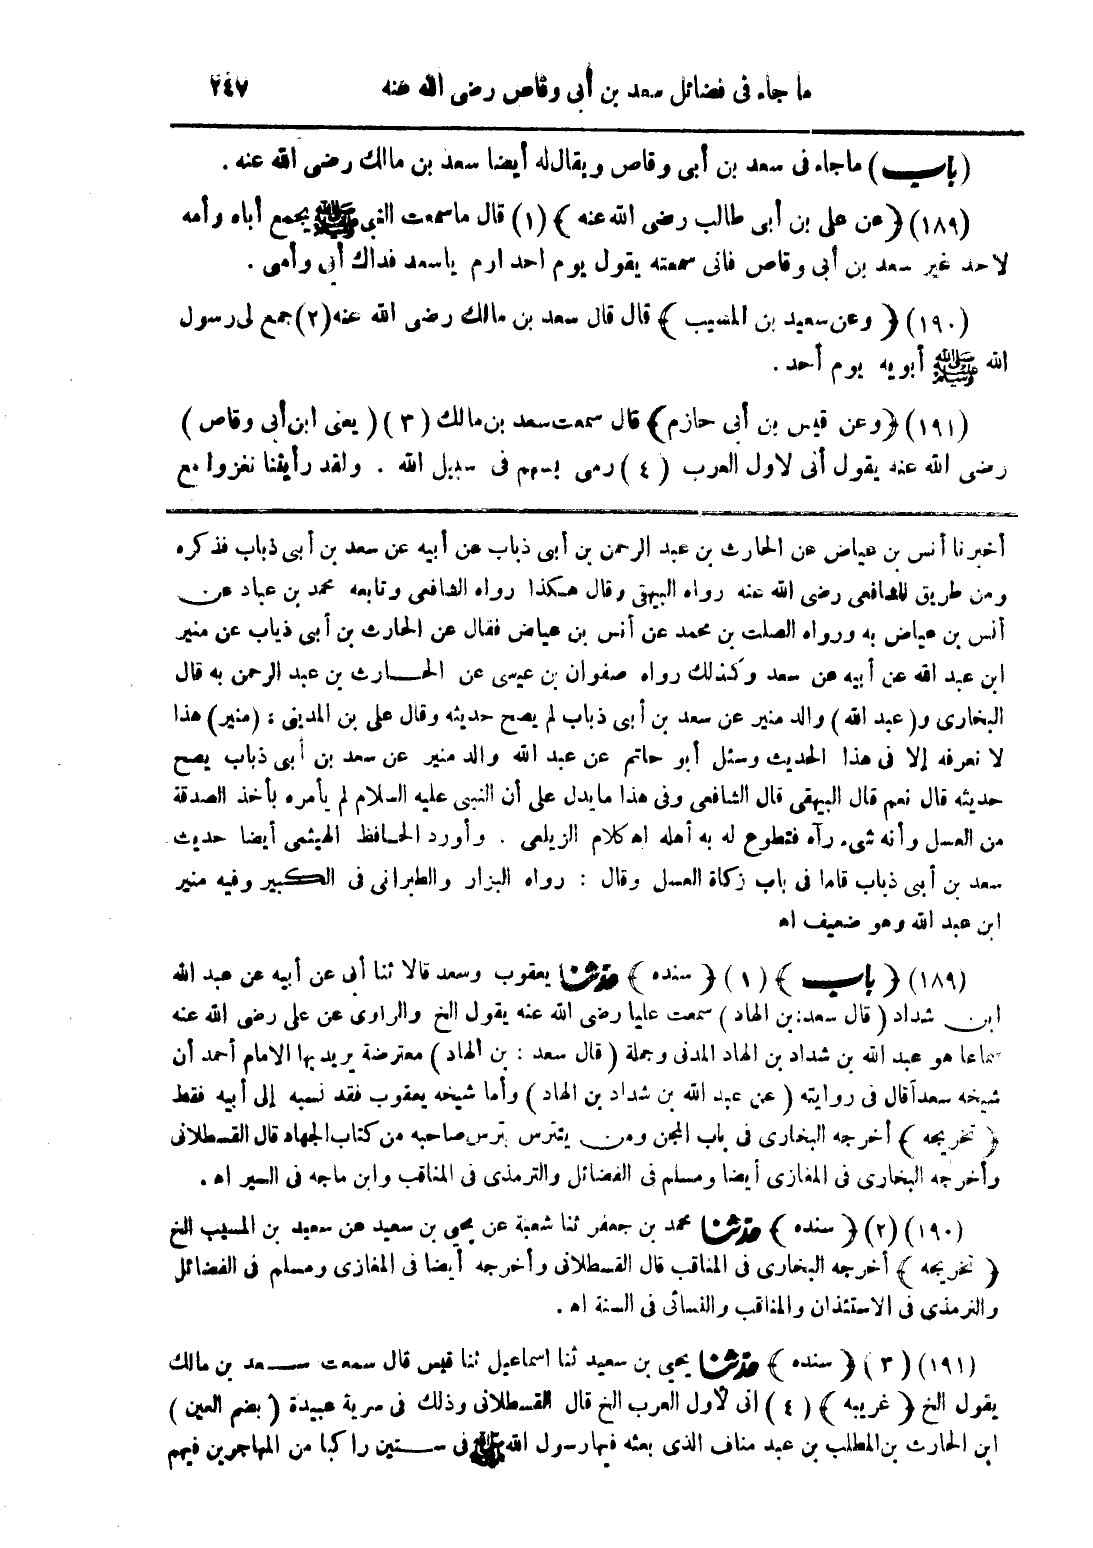 ما جاء فى فضائل سعد بن أبى وقاص رضى الله عنه ٢٤٧
(باب) ماجاء فى سعد بن أبى وقاص ويقال له أيضا سعد بن مالك رضى الله عنه .
(١٨٩) ﴿عن على بن أبى طالب رضى الله عنه﴾ (١) قال ماسمعت النبى ﷺ يجمع أباه وأمه
لاحد غير سعد بن أبى وقاص فانى سمعته يقول يوم احد ارم ياسعد فداك أبى وأمى .
(١٩٠) ﴿وعن سعيد بن المسيب﴾ قال قال سعد بن مالك رضى الله عنه (٢) جمع لى رسول
الله ﷺ أبويه يوم أحد .
(١٩١) ﴿وعن قيس بن أبى حازم﴾ قال سمعت سعد بن مالك (٣) (يعنى ابن أبى وقاص)
رضى الله عنه يقول أنى لاول العرب (٤) رمى بسهم فى سبيل الله . ولقد رأيتنا نغزوا مع
أخبرنا أنس بن عياض عن الحارث بن عبد الرحمن بن أبى ذباب عن أبيه عن سعد بن أبى ذباب فذكره
ومن طريق الشافعى رضى الله عنه رواه البيهقى وقال هكذا رواه الشافعى وتابعه محمد بن عباد عن
أنس بن عياض به ورواه الصلت بن محمد عن أنس بن عياض فقال عن الحارث بن أبى ذباب عن منير
ابن عبد الله عن أبيه عن سعد وكذلك رواه صفوان بن عيسى عن الحارث بن عبد الرحمن به قال
البخارى و(عبد الله) والد منير عن سعد بن أبى ذباب لم يصح حديثه وقال على بن المدينى : (منير) هذا
لا نعرفه إلا فى هذا الحديث وسئل أبو حاتم عن عبد الله والد منير عن سعد بن أبى ذباب يصح
حديثه قال نعم قال البيهقى قال الشافعى وفى هذا مايدل على أن النبى عليه السلام لم يأمره بأخذ الصدقة
من العسل وأنه شىء رآه فتطوع له به أهله اه كلام الزيلعى . وأورد الحافظ الهيثمى أيضا حديث
سعد بن أبى ذباب قاما فى باب زكاة العسل وقال : رواه البزار والطبرانى فى الكبير وفيه منير
ابن عبد الله وهو ضعيف اه
(١٨٩) ﴿باب﴾ (١) ﴿سنده﴾ حدثنا يعقوب وسعد قالا ثنا أبى عن أبيه عن عبد الله
ابن شداد (قال سعد: بن الهاد) سمعت عليا رضى الله عنه يقول الخ والراوى عن على رضى الله عنه
سماعا هو عبد الله بن شداد بن الهاد المدنى وجملة (قال سعد : بن الهاد) معترضة يريد بها الامام أحمد أن
شيخه سعدا قال فى روايته (عن عبد الله بن شداد بن الهاد) وأما شيخه يعقوب فقد نسبه إلى أبيه فقط
﴿تخريجه﴾ أخرجه البخارى فى باب المجن ومن يتترس بترس صاحبه من كتاب الجهاد قال القسطلانى
وأخرجه البخارى فى المغازى أيضا ومسلم فى الفضائل والترمذى فى المناقب وابن ماجه فى السير اه .
(١٩٠) (٢) ﴿سنده﴾ حدثنا محمد بن جعفر ثنا شعبة عن يحيى بن سعيد عن سعيد بن المسيب الخ
﴿تخريجه﴾ أخرجه البخارى فى المناقب قال القسطلانى وأخرجه أيضا فى المغازى ومسلم فى الفضائل
والترمذى فى الاستئذان والمناقب والنسائى فى السنة اه .
(١٩١) (٣) ﴿سنده﴾ حدثنا يحيى بن سعيد ثنا اسماعيل ثنا قيس قال سمعت سعد بن مالك
يقول الخ ﴿غريبه﴾ (٤) انى لأول العرب الخ قال القسطلانى وذلك فى سرية عبيدة (بضم العين)
ابن الحارث بن المطلب بن عبد مناف الذى بعثه فيها رسول الله ﷺ فى ستين راكبا من المهاجرين فيهم